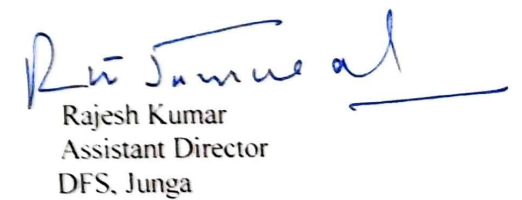 Rajesh Kumar
Assistant Director
DFS, Junga